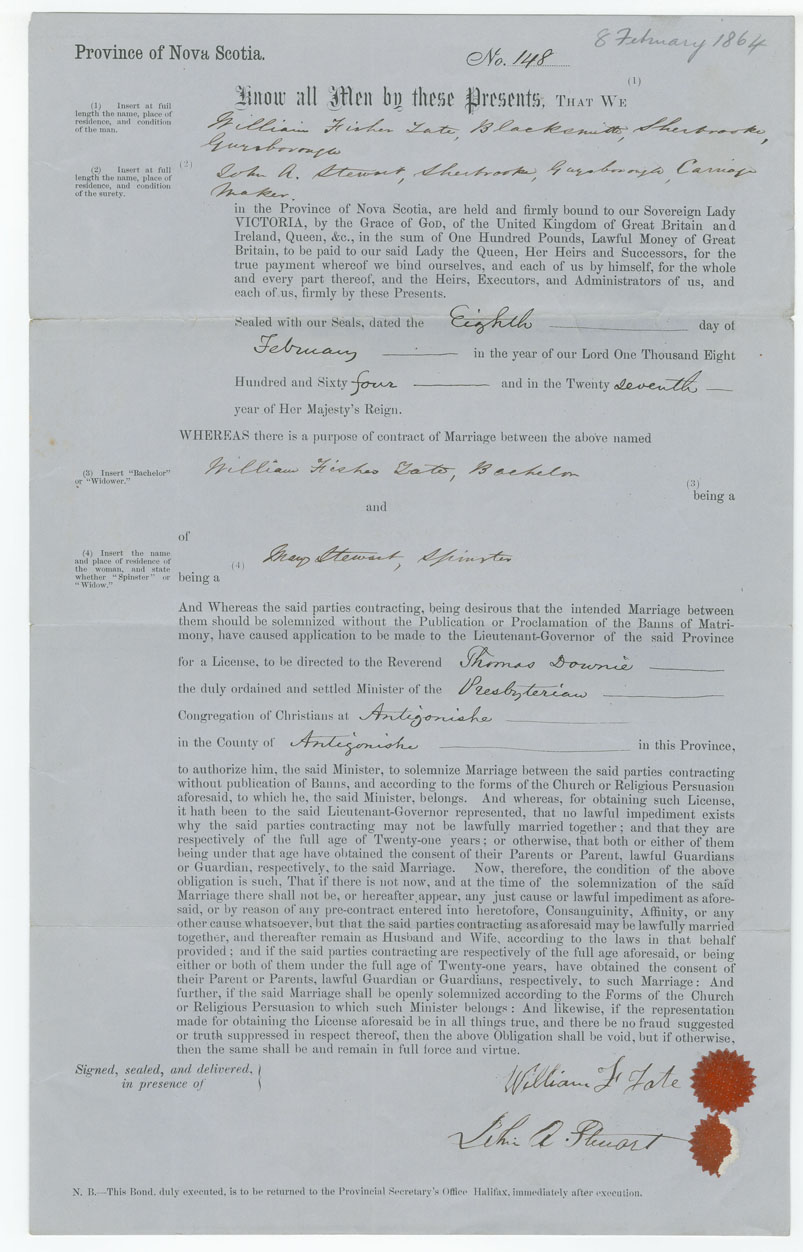 8 February 1864
Province of Nova Scotia.
No. 148
(1)
Know all Men by these Presents, THAT WE
(1) Insert at full
length the name, place of
residence, and condition
of the man.
William Fisher Tate, Blacksmith, Sherbrooke,
Guysborough
(2)
(2) Insert at full
length the name, place of
residence, and condition
of the surety.
John A. Stewart, Sherbrooke, Guysborough, Carriage
Maker.
in the Province of Nova Scotia, are held and firmly bound to our Sovereign Lady
VICTORIA, by the Grace of GOD, of the United Kingdom of Great Britain and
Ireland, Queen, &c., in the sum of One Hundred Pounds, Lawful Money of Great
Britain, to be paid to our said Lady the Queen, Her Heirs and Successors, for the
true payment whereof we bind ourselves, and each of us by himself, for the whole
and every part thereof, and the Heirs, Executors, and Administrators of us, and
each of us, firmly by these Presents.
Sealed with our Seals, dated the Eighth day of
February in the year of our Lord One Thousand Eight
Hundred and Sixty four and in the Twenty seventh
year of Her Majesty's Reign.
WHEREAS there is a purpose of contract of Marriage between the above named
(3) Insert "Bachelor"
or "Widower."
William Fisher Tate, Bachelor
(3)
being a
and
of
(4) Insert the name
and place of residence of
the woman, and state
whether "Spinster" or
"Widow."
(4) Mary Stewart, Spinster
being a
And Whereas the said parties contracting, being desirous that the intended Marriage between
them should be solemnized without the Publication or Proclamation of the Banns of Matri-
mony, have caused application to be made to the Lieutenant-Governor of the said Province
for a License, to be directed to the Reverend Thomas Downie
the duly ordained and settled Minister of the Presbyterian
Congregation of Christians at Antigonishe
in the County of Antigonishe in this Province,
to authorize him, the said Minister, to solemnize Marriage between the said parties contracting
without publication of Banns, and according to the forms of the Church or Religious Persuasion
aforesaid, to which he, the said Minister, belongs. And whereas, for obtaining such License,
it hath been to the said Lieutenant-Governor represented, that no lawful impediment exists
why the said parties contracting may not be lawfully married together; and that they are
respectively of the full age of Twenty-one years; or otherwise, that both or either of them
being under that age have obtained the consent of their Parents or Parent, lawful Guardians
or Guardian, respectively, to the said Marriage. Now, therefore, the condition of the above
obligation is such, That if there is not now, and at the time of the solemnization of the said
Marriage there shall not be, or hereafter appear, any just cause or lawful impediment as afore-
said, or by reason of any pre-contract entered into heretofore, Consanguinity, Affinity, or any
other cause whatsoever, but that the said parties contracting as aforesaid may be lawfully married
together, and thereafter remain as Husband and Wife, according to the laws in that behalf
provided; and if the said parties contracting are respectively of the full age aforesaid, or being
either or both of them under the full age of Twenty-one years, have obtained the consent of
their Parent or Parents, lawful Guardian or Guardians, respectively, to such Marriage: And
further, if the said Marriage shall be openly solemnized according to the Forms of the Church
or Religious Persuasion to which such Minister belongs: And likewise, if the representation
made for obtaining the License aforesaid be in all things true, and there be no fraud suggested
or truth suppressed in respect thereof, then the above Obligation shall be void, but if otherwise,
then the same shall be and remain in full force and virtue.
Signed, sealed, and delivered,
in presence of
William F Tate
John A. Stewart
N. B.—This Bond, duly executed, is to be returned to the Provincial Secretary's Office Halifax, immediately after execution.